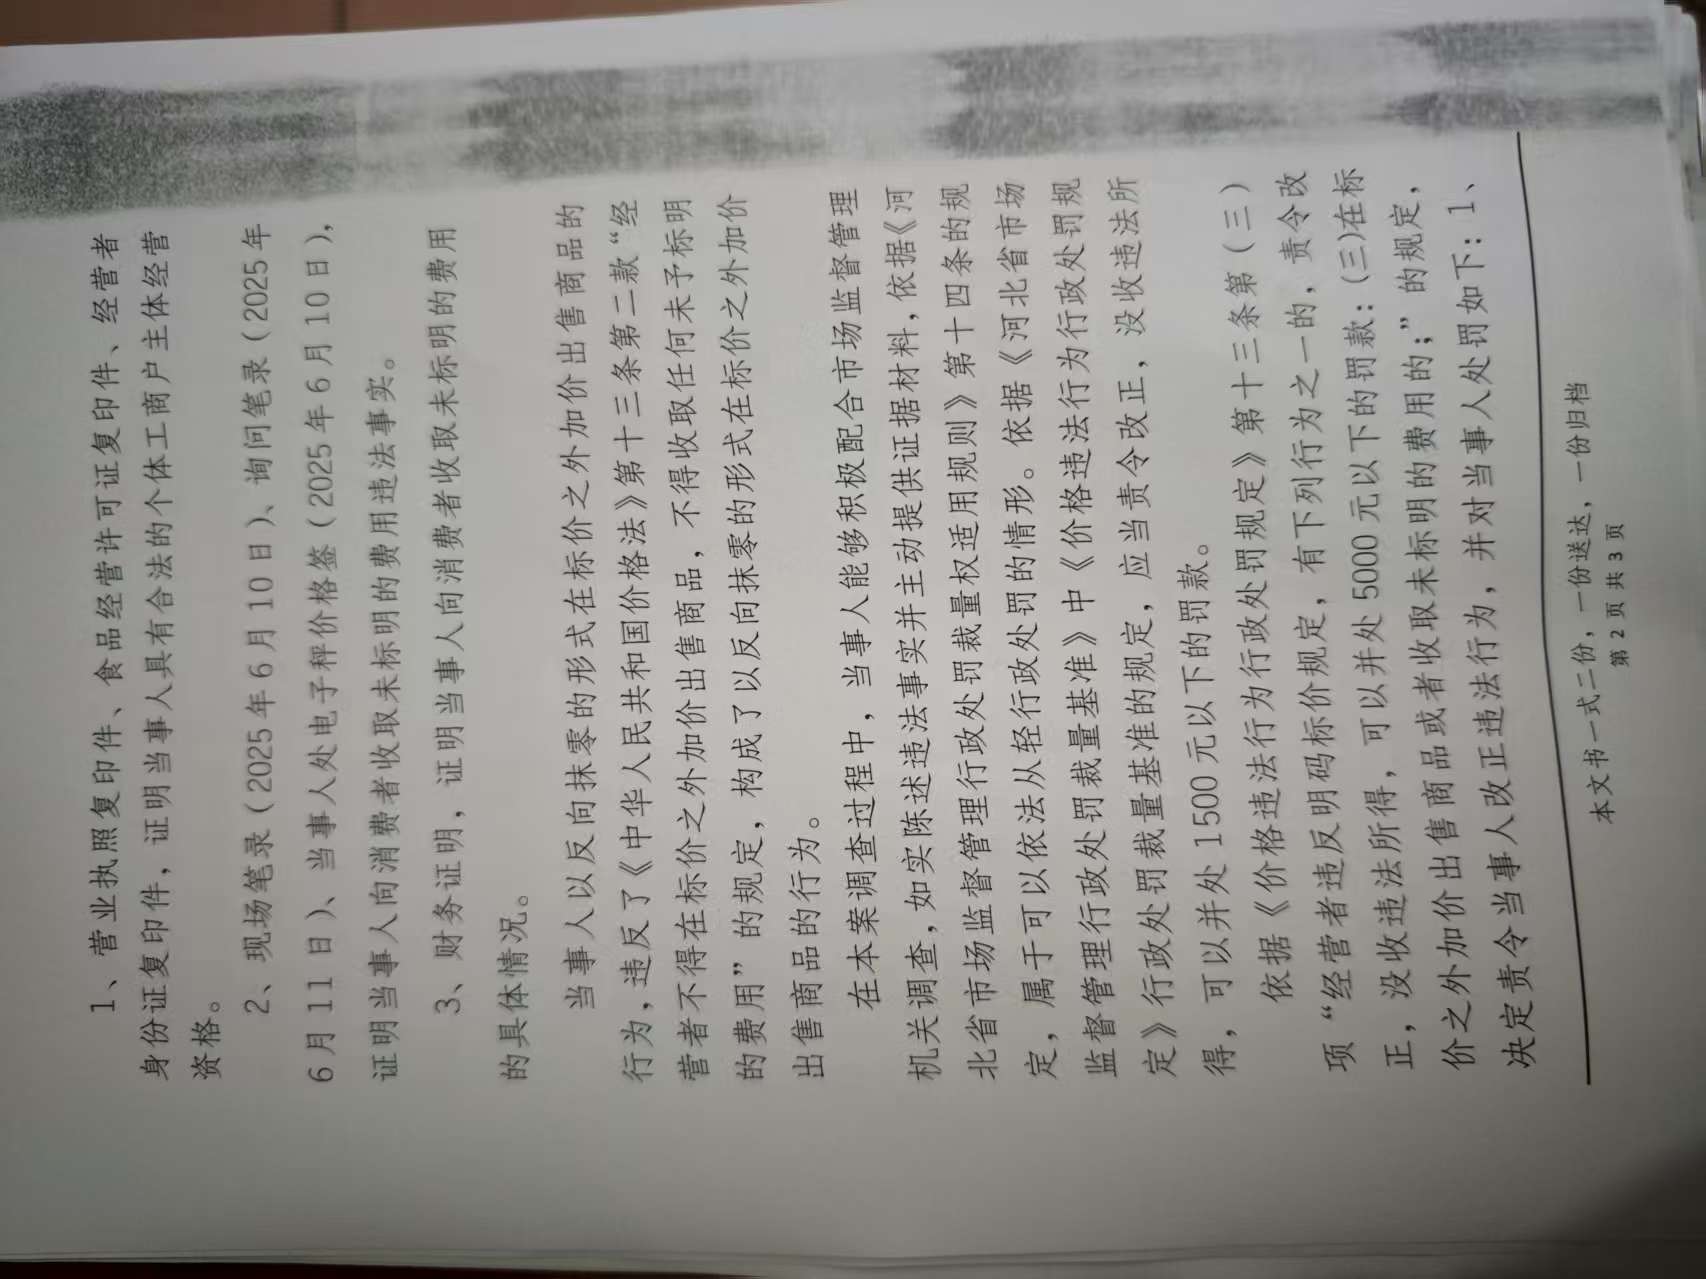 1、营业执照复印件、食品经营许可证复印件、经营者
身份证复印件，证明当事人具有合法的个体工商户主体经营
资格。
2、现场笔录（2025年6月10日）、询问笔录（2025年
6月11日）、当事人处电子秤价格签（2025年6月10日），
证明当事人向消费者收取未标明的费用违法事实。
3、财务证明，证明当事人向消费者收取未标明的费用
的具体情况。
当事人以反向抹零的形式在标价之外加价出售商品的
行为，违反了《中华人民共和国价格法》第十三条第二款“经
营者不得在标价之外加价出售商品，不得收取任何未予标明
的费用”的规定，构成了以反向抹零的形式在标价之外加价
出售商品的行为。
在本案调查过程中，当事人能够积极配合市场监督管理
机关调查，如实陈述违法事实并主动提供证据材料，依据《河
北省市场监督管理行政处罚裁量权适用规则》第十四条的规
定，属于可以依法从轻行政处罚的情形。依据《河北省市场
监督管理行政处罚裁量基准》中《价格违法行为行政处罚规
定》行政处罚裁量基准的规定，应当责令改正，没收违法所
得，可以并处1500元以下的罚款。
依据《价格违法行为行政处罚规定》第十三条第（三）
项“经营者违反明码标价规定，有下列行为之一的，责令改
正，没收违法所得，可以并处5000元以下的罚款：(三)在标
价之外加价出售商品或者收取未标明的费用的；”的规定，
决定责令当事人改正违法行为，并对当事人处罚如下：1、
本文书一式二份，一份送达，一份归档
第2页共3页